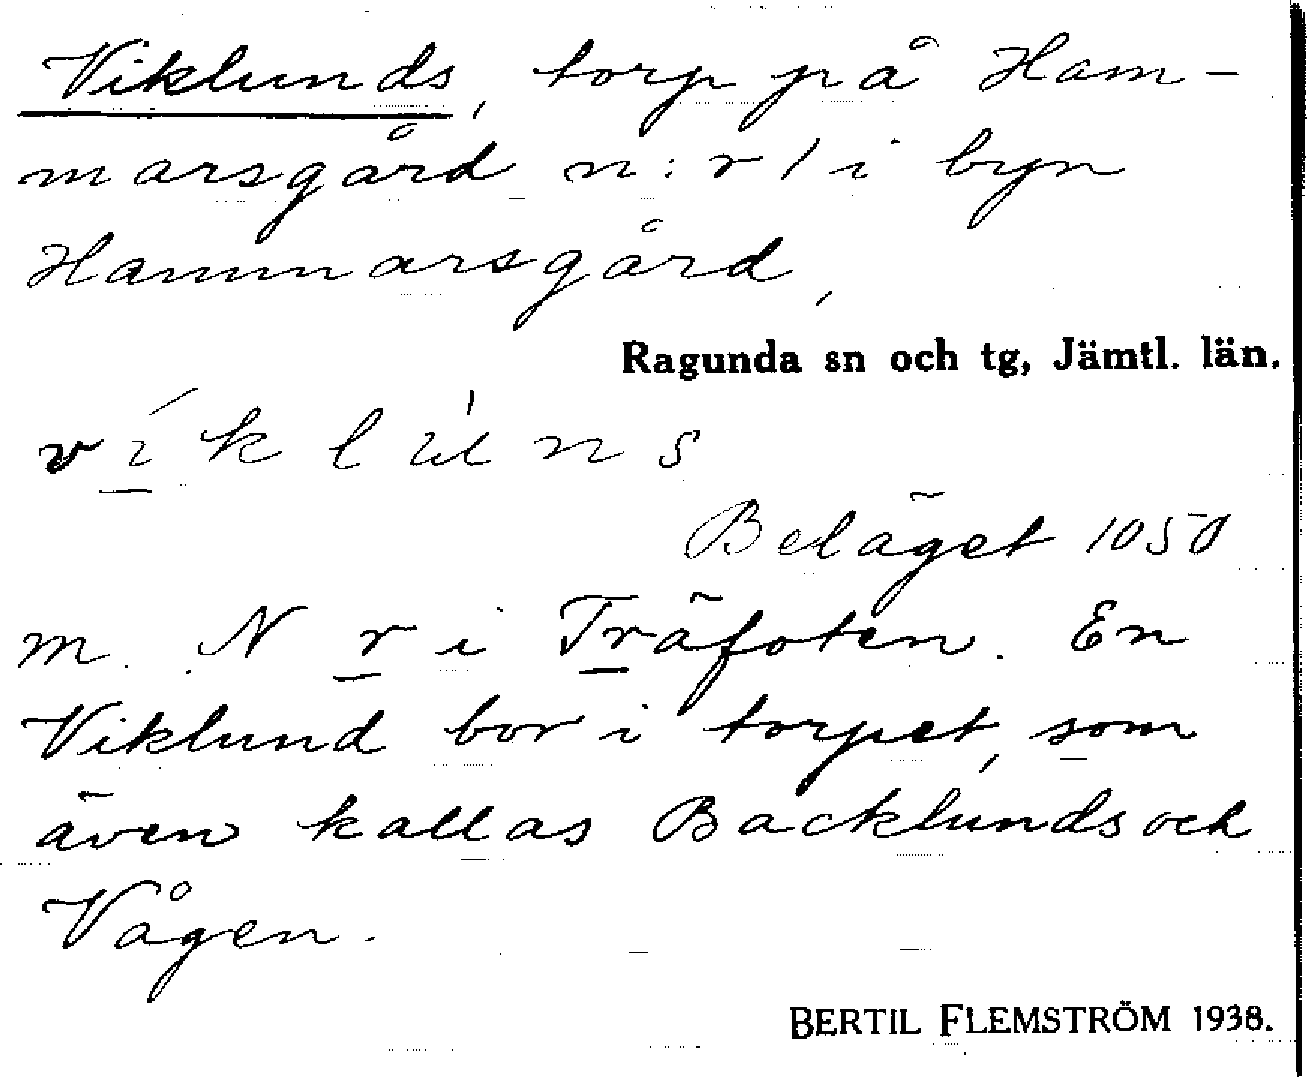 Viklunds, torp på Ham-
marsgård n:r 1 i byn
Hammarsgård,
Ragunda sn och tg, Jämtl. län.
víklúns
Beläget 1050
m. N r i Träfoten. En
Viklund bor i torpet, som
även kallas Backlunds och
Vågen.
BERTIL FLEMSTRÖM 1938.